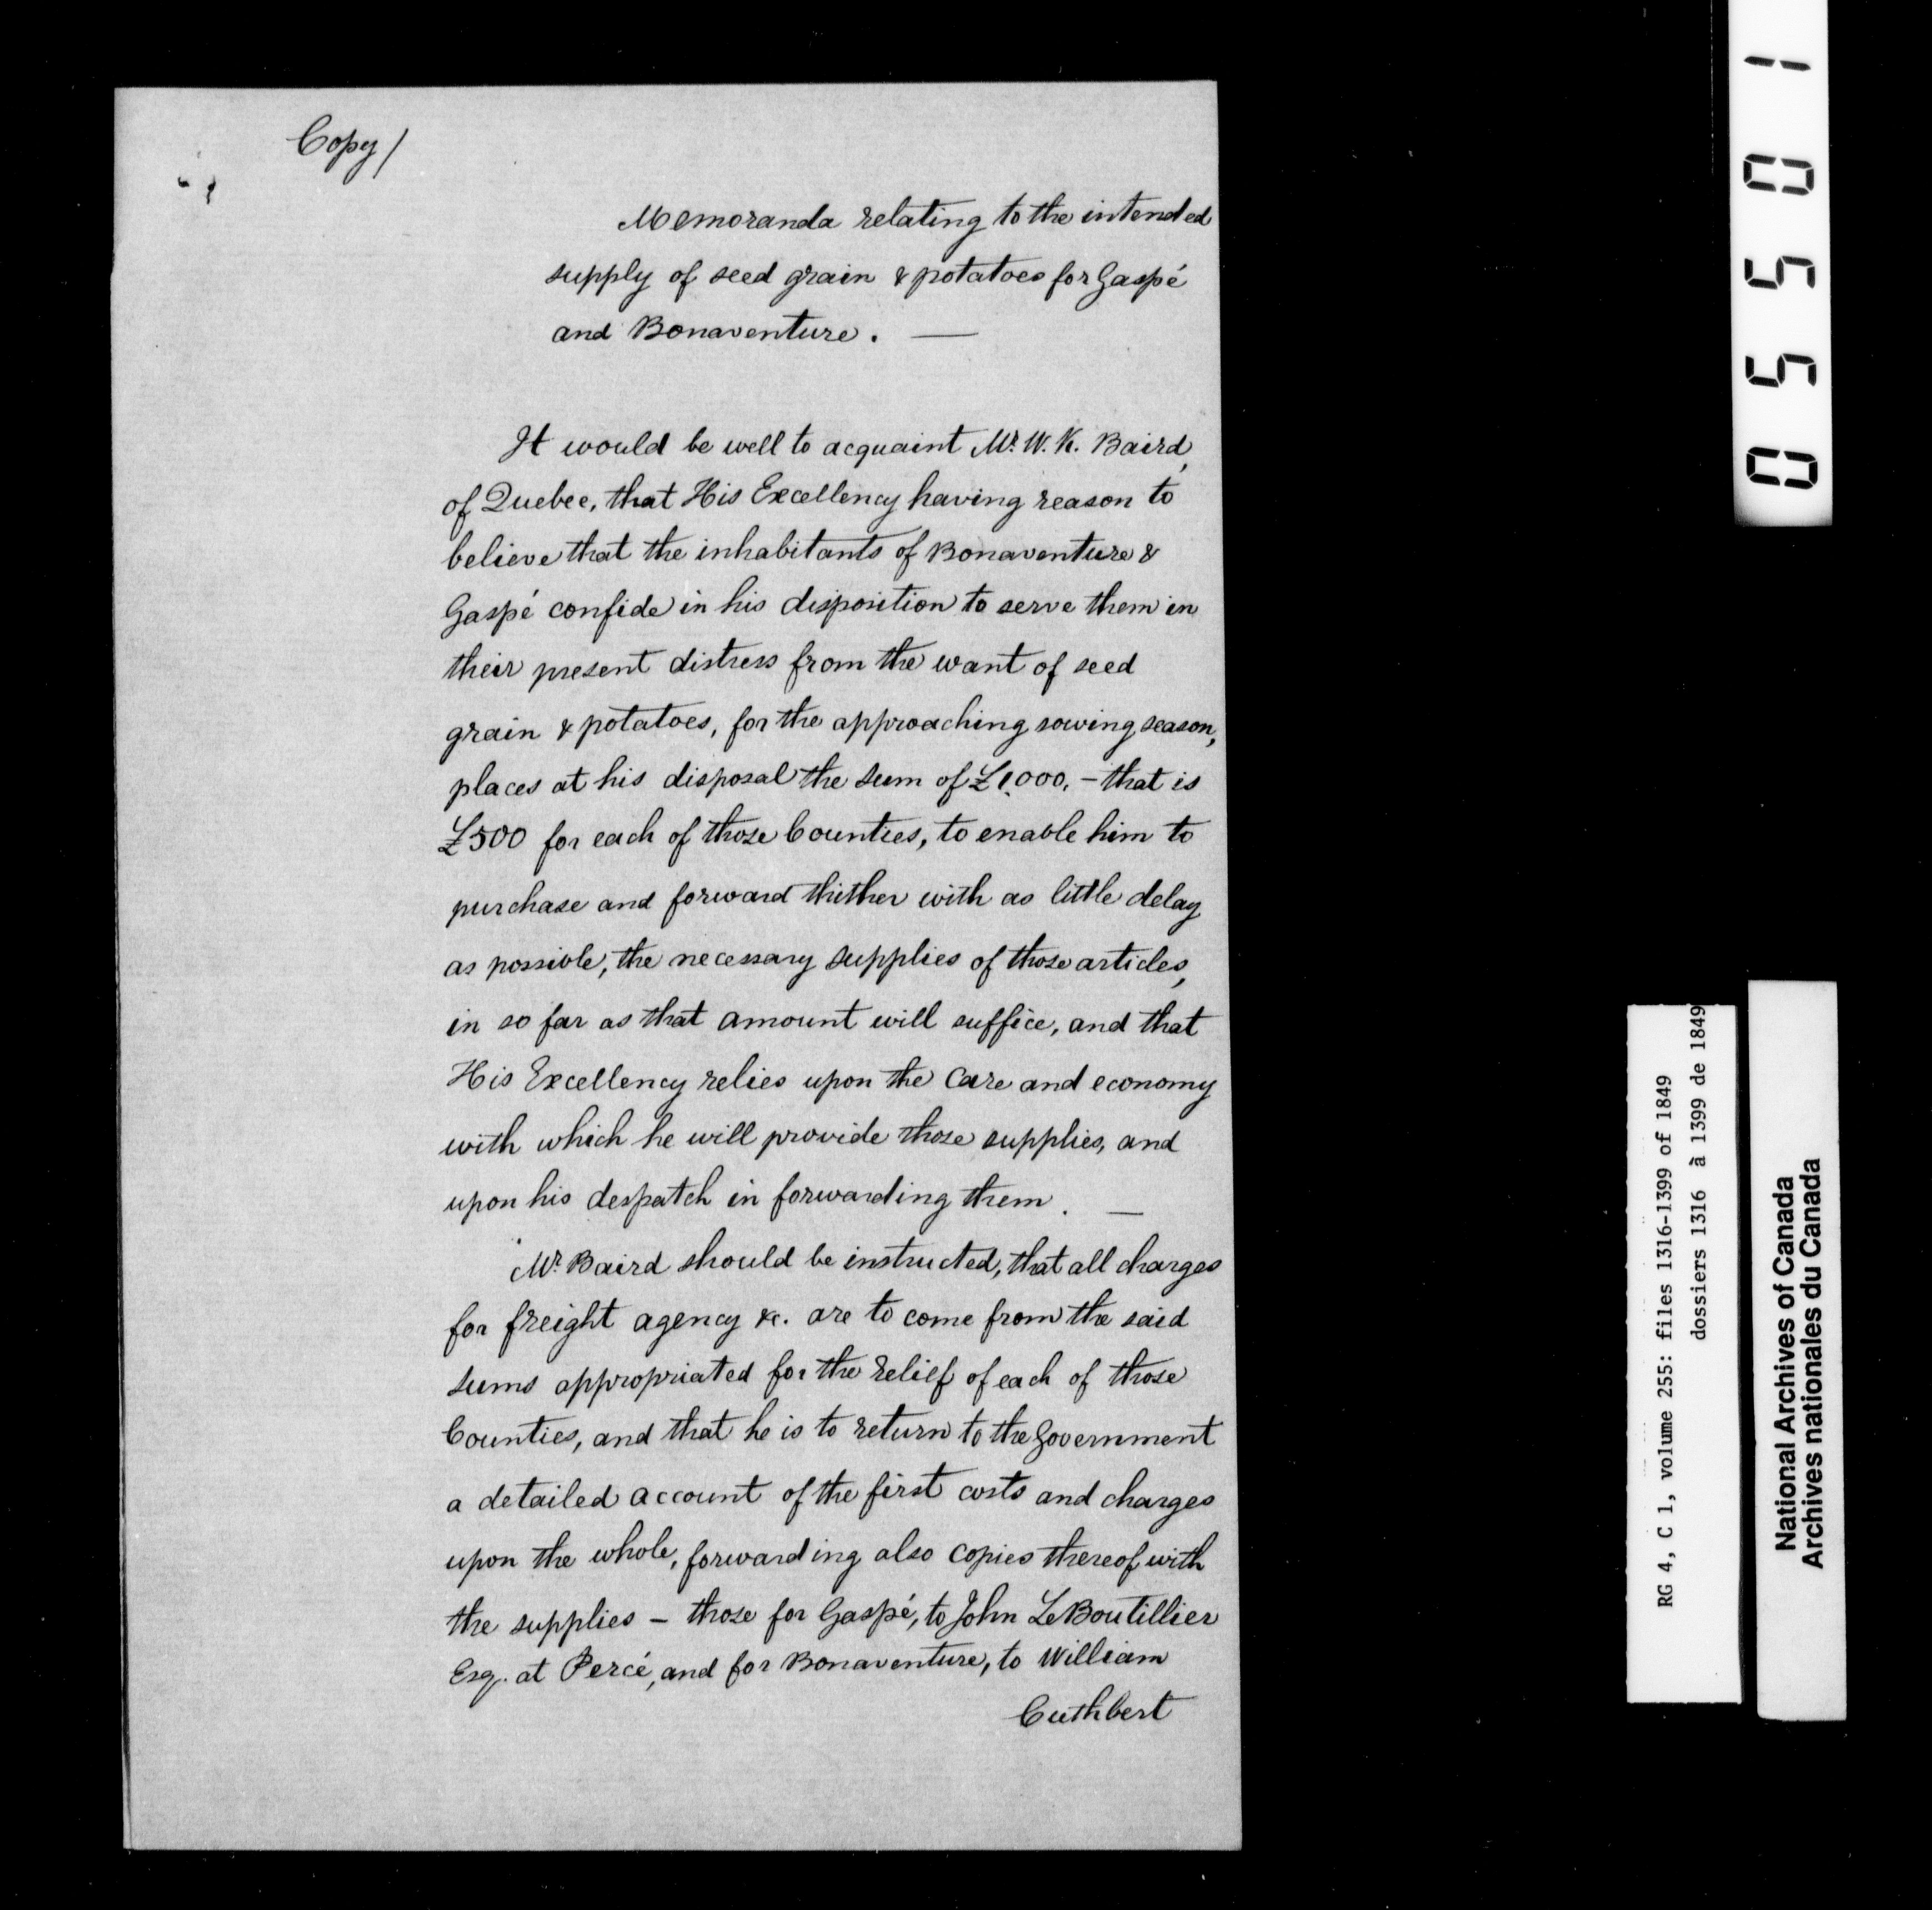 Copy/
Memoranda relating to the intended
supply of seed grain & potatoes for Gaspé
and Bonaventure. —
It would be well to acquaint Mr. W. K. Baird,
of Quebec, that His Excellency having reason to
believe that the inhabitants of Bonaventure &
Gaspé confide in his disposition to serve them in
their present distress from the want of seed
grain & potatoes, for the approaching sowing season,
places at his disposal the sum of £1,000. – that is
£500 for each of those Counties, to enable him to
purchase and forward thither with as little delay
as possible, the necessary supplies of those articles,
in so far as that amount will suffice, and that
His Excellency relies upon the care and economy
with which he will provide those supplies, and
upon his despatch in forwarding them. —
Mr. Baird should be instructed, that all charges
for freight agency &c. are to come from the said
sums appropriated for the relief of each of those
Counties, and that he is to return to the Government
a detailed account of the first costs and charges
upon the whole, forwarding also copies thereof with
the supplies – those for Gaspé, to John LeBoutillier
Esq. at Percé, and for Bonaventure, to William
Cuthbert
05501
RG 4, C 1, volume 255: files 1316-1399 of 1849
dossiers 1316 à 1399 de 1849
National Archives of Canada
Archives nationales du Canada